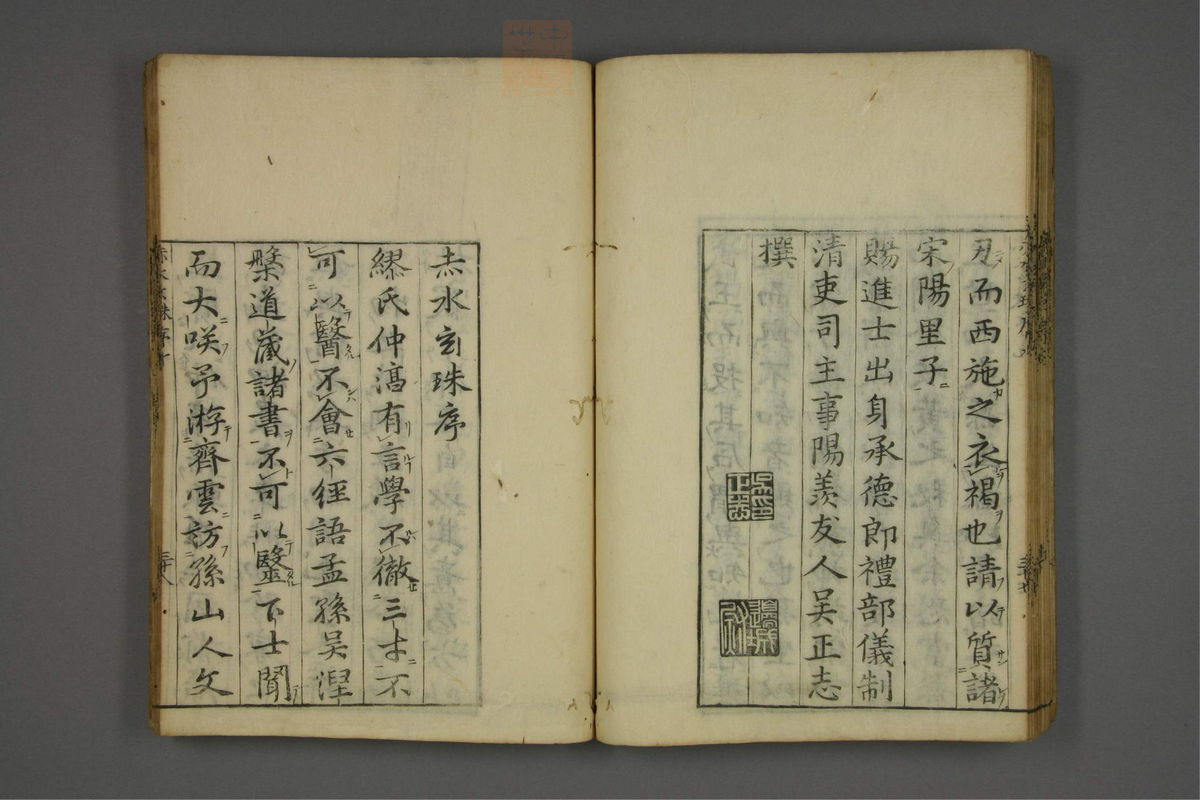 刄而西施之衣褐也請以質諸
宋陽里子
賜進士出身承德郎禮部儀制
清吏司主事陽羨友人吴正志
撰
赤水玄珠序
繆氏仲湻有言學不徹三才不
可以醫不會六經語孟孫吴涅
槃道藏諸書不可以毉下士聞
而大咲予游齊雲訪孫山人文